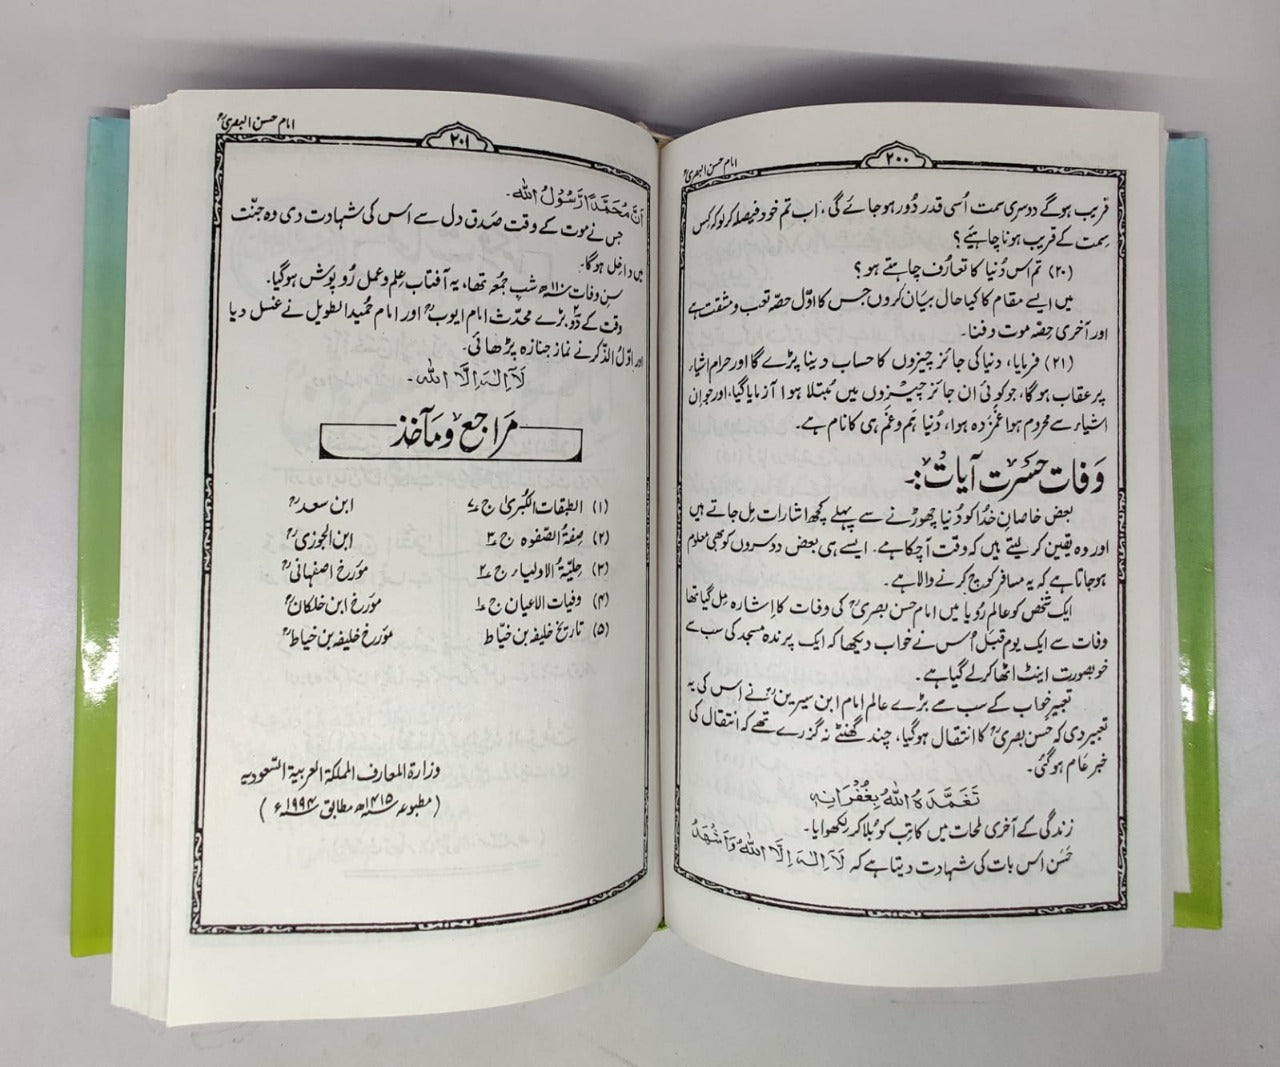 امام حسن البصریؒ
۲۰۰
قریب ہوگے دوسری سمت اُسی قدر دُور ہوجائے گی، اب تم خود فیصلہ کرلو کہ کس
سمت کے قریب ہونا چاہیئے؟
(۲۰) تم اس دُنیا کا تعارُف چاہتے ہو؟
میں ایسے مقام کا کیا حال بیان کروں جس کا اوّل حصّہ تعب و مشقت ہے
اور آخری حصّہ موت و فنا۔
(۲۱) فرمایا، دنیا کی جائز چیزوں کا حساب دینا پڑے گا اور حرام اشیار
پر عقاب ہوگا، جو کوئی ان جائز چیزوں میں مُبتلا ہوا آزمایا گیا، اور جو اِن
اشیاء سے محروم ہوا غمزدہ ہوا، دُنیا ہَم و غَم ہی کا نام ہے۔
وَفات حسَرت آیات:۔
بعض خاصانِ خُدا کو دُنیا چھوڑنے سے پہلے کچھ اشارات مِل جاتے ہیں
اور وہ یقین کر لیتے ہیں کہ وقت آچکا ہے۔ ایسے ہی بعض دوسروں کو بھی معلوم
ہوجاتا ہے کہ یہ مسافر کوچ کرنے والا ہے۔
ایک شخص کو عالمِ رُویا میں امام حسن بصریؒ کی وفات کا اِشارہ مِل گیا تھا
وفات سے ایک یوم قبل اُس نے خواب دیکھا کہ ایک پرندہ مسجد کی سب سے
خوبصورت اینٹ اٹھا کر لے گیا ہے۔
تعبیرِ خواب کے سب سے بڑے عالم امام ابن سیرینؒ نے اس کی یہ
تعبیر دی کہ حسن بصریؒ کا انتقال ہوگیا، چند گھنٹے نہ گزرے تھے کہ انتقال کی
خبر عَام ہوگئی۔
تَغَمَّدَہُ اللّٰہُ بِغُفْرَانِہٖ
زندگی کے آخری لمحات میں کاتِب کو بُلا کر لِکھوایا۔
حَسَن اس بات کی شہادت دیتا ہے کہ لَآ اِلٰہَ اِلَّا اللّٰہُ وَاَشْھَدُ
امام حسن البصریؒ
۲۰۱
اَنَّ مُحَمَّدًا رَّسُوْلُ اللّٰہ۔
جس نے موت کے وقت صَدق دل سے اس کی شہادت دی وہ جنّت
میں داخل ہوگا۔
سن وفات ۱۱۰ھ شبِ جُمعہ تھا، یہ آفتابِ عِلم و عمل رُوپوش ہوگیا۔
وقت کے دو۲ بڑے محدّث امام ایوبؒ اور امام حُمید الطویل نے غسل دیا
اور اوّلُ الذّکر نے نماز جنازہ پڑھائی۔
لَآ اِلٰہَ اِلَّا اللّٰہ۔
مَرَاجع و مَآخذ
(۱) الطبقات الکبریٰ ج ۷ ابن سعدؒ
(۲) صِفۃُ الصّفوہ ج ۳ ابن الجوزیؒ
(۳) حِلیۃُ الاولیاء ج ۲ مؤرخ اصفہانیؒ
(۴) وفیات الاعیان ج ۱ مؤرخ ابن خلکانؒ
(۵) تاریخ خلیفہ بن خیّاط مؤرخ خلیفہ بن خیاطؒ
وزارۃ المعارف المملکۃ العربیۃ السّعودیہ
(مطبوعہ ۱۴۱۵ھ مطابق ۱۹۹۴ء)